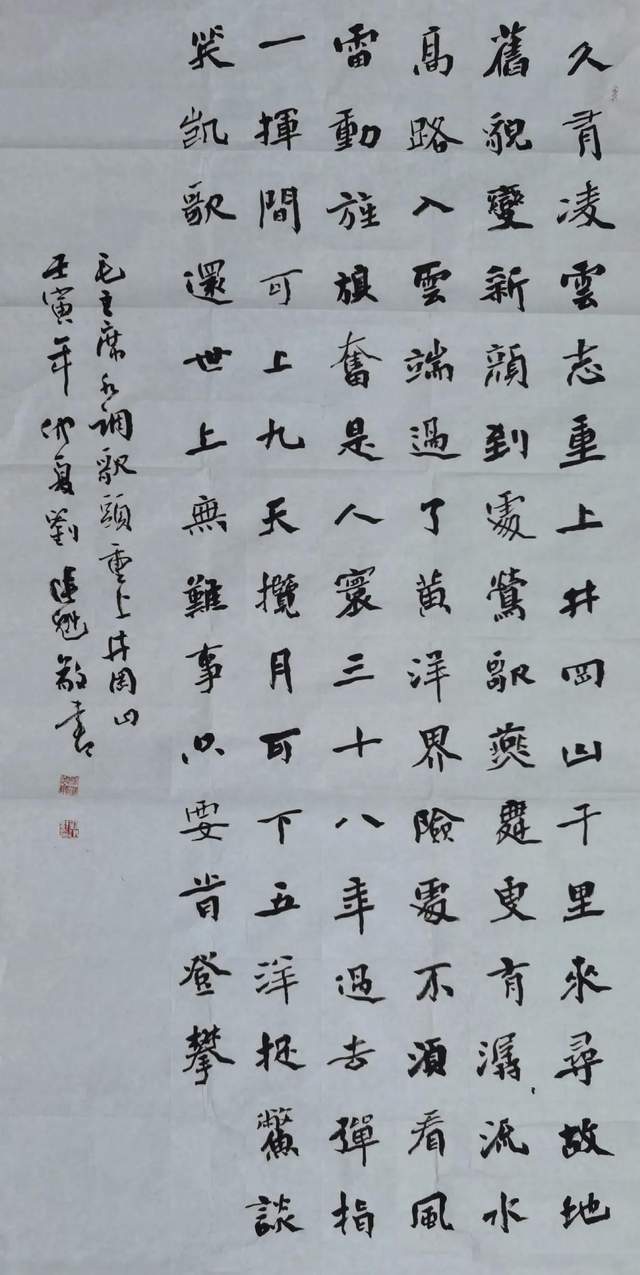 久有凌雲志重上井岡山千里來尋故地
舊貌變新顔到處鶯歌燕舞更有潺流水
高路入雲端過了黄洋界險處不須看風
雷動旌旗奮是人寰三十八年過去彈指
一揮間可上九天攬月可下五洋捉鱉談
笑凱歌還世上無難事只要肯登攀
毛主席水調歌頭重上井岡山
壬寅年仲夏劉 敬書